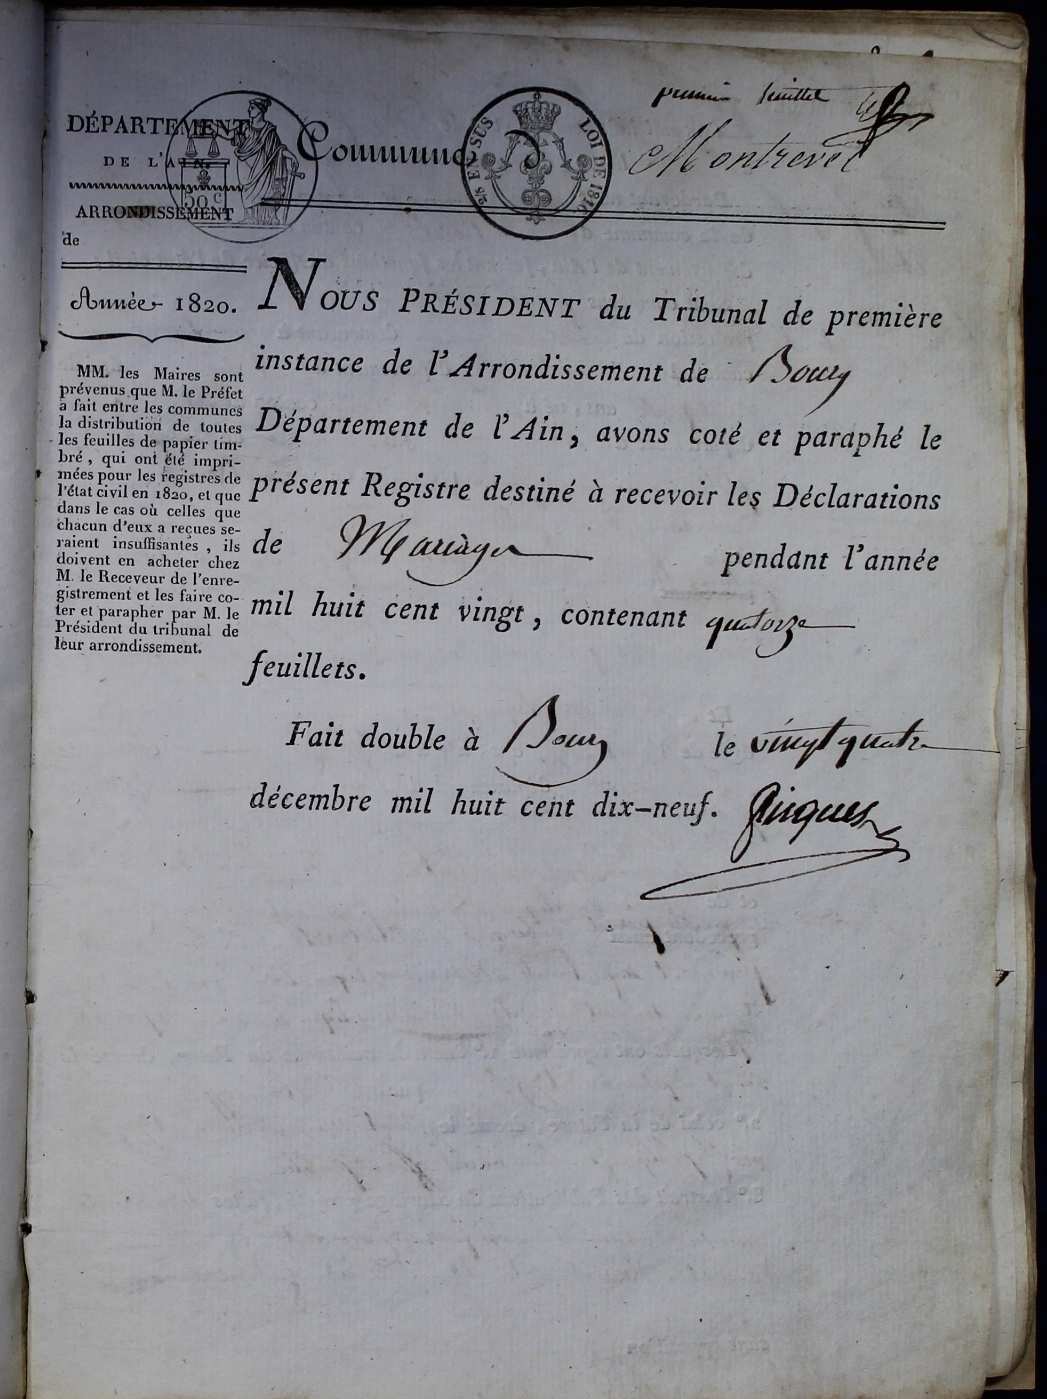 premier feuillet
DÉPARTEMENT
DE L'AIN.
ARRONDISSEMENT
de
Commune d
Montrevel
50 c
2/5 EN SUS
LOI DE 1816
Année 1820.
MM. les Maires sont
prévenus que M. le Préfet
a fait entre les communes
la distribution de toutes
les feuilles de papier tim-
bré, qui ont été impri-
mées pour les registres de
l'état civil en 1820, et que
dans le cas où celles que
chacun d'eux a reçues se-
raient insuffisantes, ils
doivent en acheter chez
M. le Receveur de l'enre-
gistrement et les faire co-
ter et parapher par M. le
Président du tribunal de
leur arrondissement.
NOUS PRÉSIDENT du Tribunal de première
instance de l'Arrondissement de Bourg
Département de l'Ain, avons coté et paraphé le
présent Registre destiné à recevoir les Déclarations
de Mariages pendant l'année
mil huit cent vingt, contenant quatorze
feuillets.
Fait double à Bourg le vingt quatre
décembre mil huit cent dix-neuf.